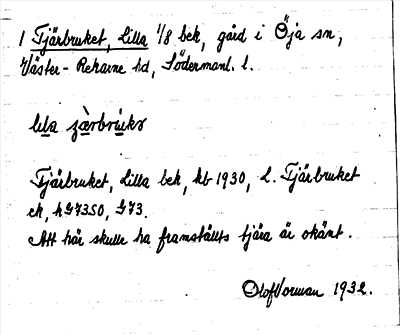 1 Tjärbruket, Lilla 1/8 bek, gård i Öja sn,
Väster-Rekarne hd, Södermanl. l.
Tjärbruket, Lilla bek, kb 1930, L. Tjärbruket
ek, hG73SO, G73.
Att här skulle ha framställts tjära är okänt.
Olof Vorman 1932.